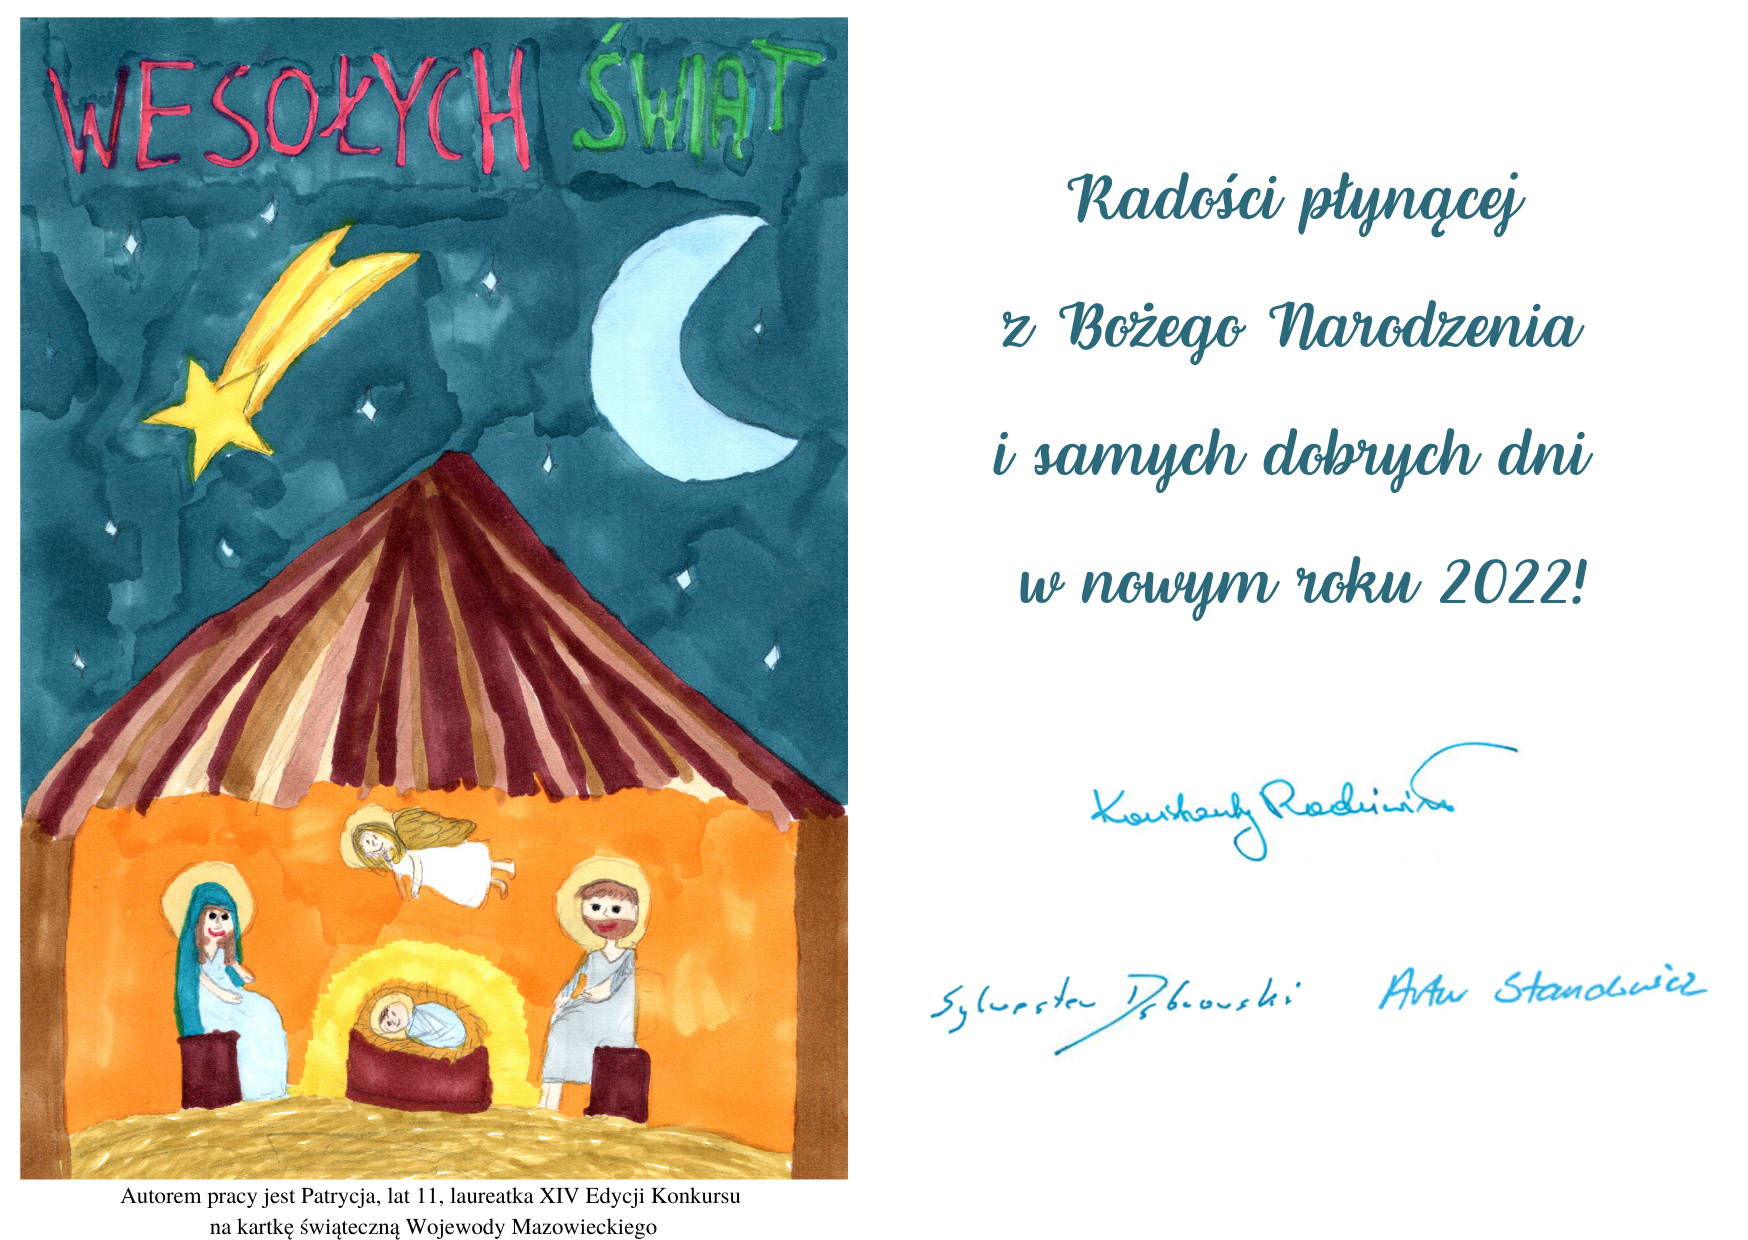 WESOŁYCH ŚWIĄT
Radości płynącej
z Bożego Narodzenia
i samych dobrych dni
w nowym roku 2022!
Konstanty Radziwiłł
Sylwester Dąbrowski Artur Standowicz
Autorem pracy jest Patrycja, lat 11, laureatka XIV Edycji Konkursu
na kartkę świąteczną Wojewody Mazowieckiego